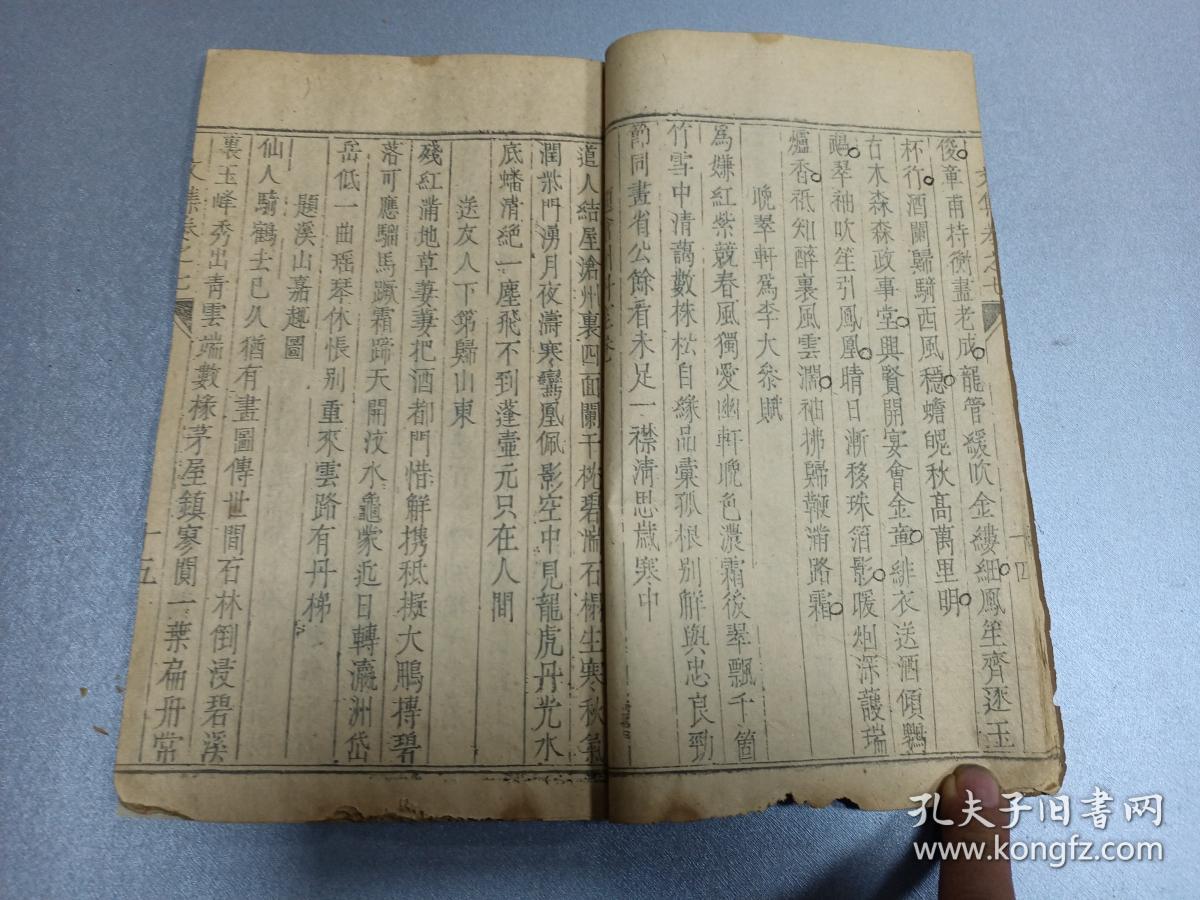 俊章甫持衡盡老成龍管緩吹金縷細鳳笙齊逐玉
杯行酒闌歸騎西風穩蟾皒秋高萬里明
古木森森政事堂興賢開宴會金童緋衣送酒傾鸚
鵡翠袖吹笙引鳳凰晴日漸移珠箔影暖烟深護瑞
爐香祗知醉裏風雲濶袖拂歸鞭滿路霜
晚翠軒爲李大參賦
爲嫌紅紫競春風獨愛幽軒晚色濃霜後翠飄千箇
竹雪中清藹數株松自緣品彙孤根別解與忠良勁
節同畫省公餘看未足一襟清思歲寒中
十四
道人結屋滄州裏四面闌干枕碧湍石榻生寒秋氣
潤柴門湧月夜濤寒鸞凰佩影空中見龍虎丹光水
底蟠清絶一塵飛不到蓬壺元只在人間
送友人下第歸山東
殘紅滿地草萋萋把酒都門惜解携秪擬大鵬摶碧
落可應騮馬蹶霜蹄天開汶水龜蒙近日轉瀛洲岱
岳低一曲瑶琴休悵别重來雲路有丹梯
題溪山嘉趣圖
仙人騎鶴去已久猶有畫圖傳世間石林倒浸碧溪
裏玉峰秀出青雲端數椽茅屋鎮寥閴一葉扁舟常
文集卷之七
十五
孔夫子旧书网
www.kongfz.com